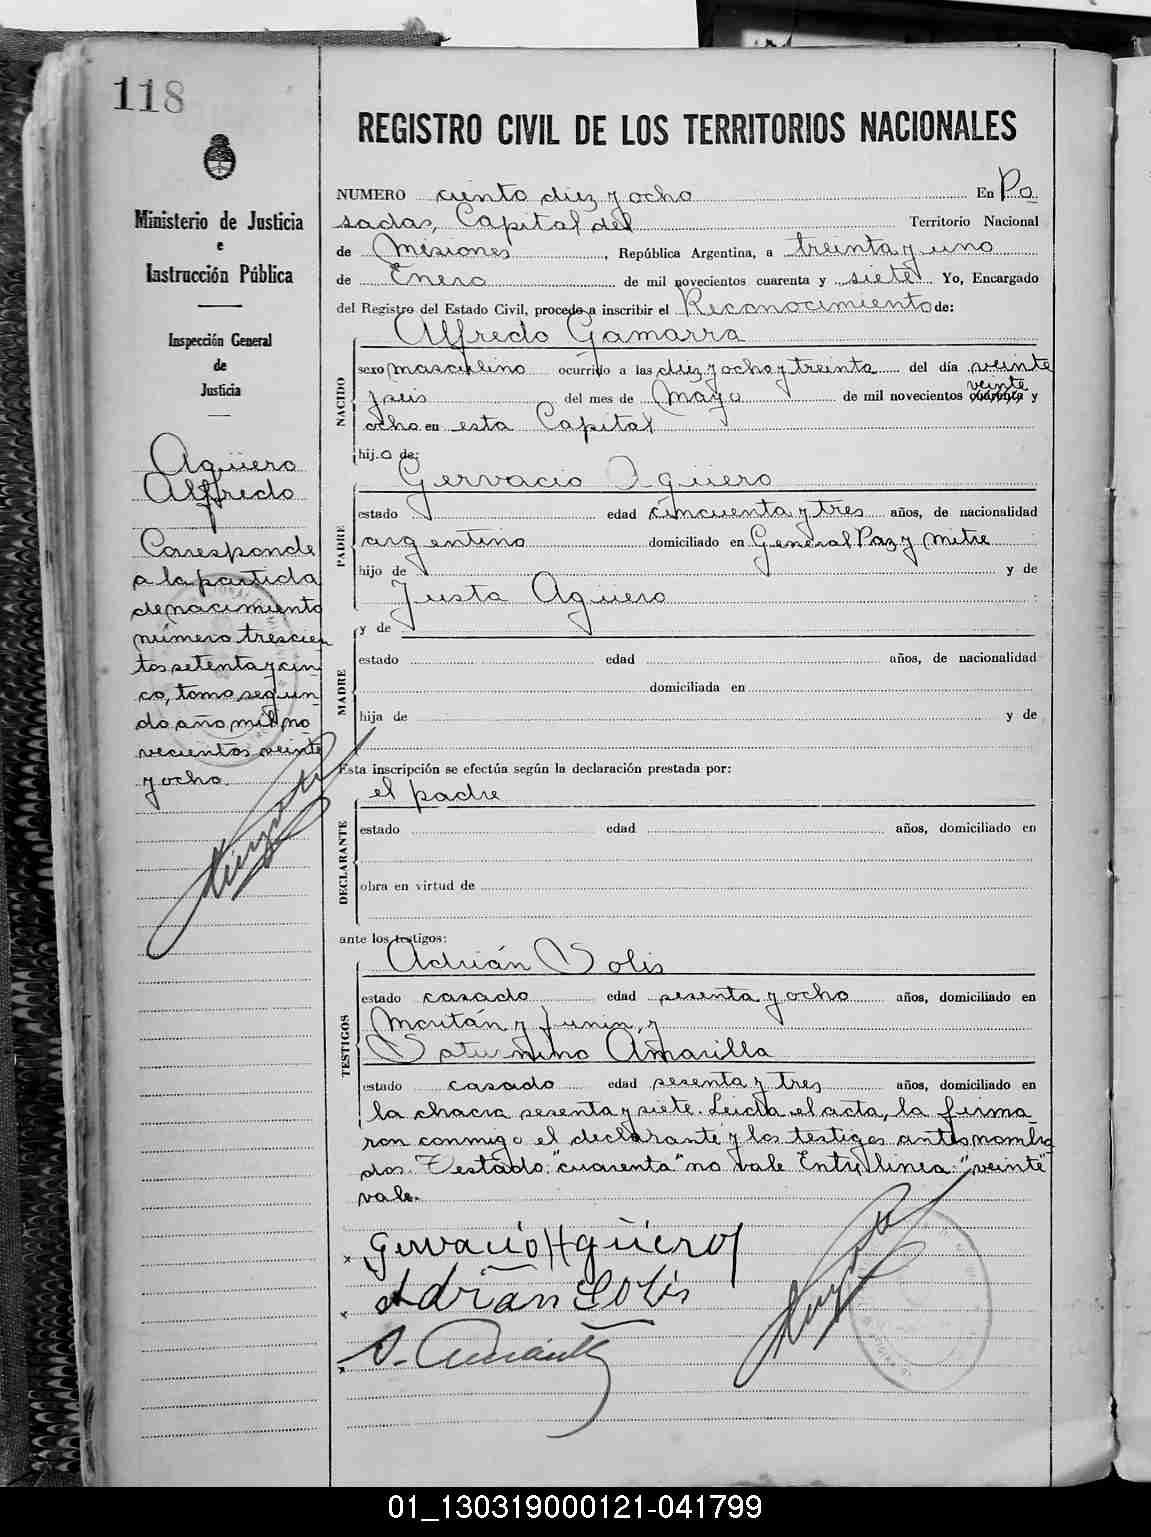 118
REGISTRO CIVIL DE LOS TERRITORIOS NACIONALES
Ministerio de Justicia
e
Instrucción Pública
Inspección General
de
Justicia
Agüero
Alfredo
Corresponde
a la partida
de nacimiento
número trescien
tos setenta y cin
co, tomo segun
do año mil no
vecientos veinte
y ocho.
NUMERO ciento diez y ocho En Po
sadas, Capital del Territorio Nacional
de Misiones, República Argentina, a treinta y uno
de Enero de mil novecientos cuarenta y siete. Yo, Encargado
del Registro del Estado Civil, procedo a inscribir el Reconocimiento de:
Alfredo Gamarra
NACIDO
sexo masculino ocurrido a las diez y ocho y treinta del día veinte
y seis del mes de Mayo de mil novecientos cuarenta veinte y
ocho en esta Capital
hijo de:
Gervacio Agüero
PADRE
estado edad cincuenta y tres años, de nacionalidad
argentino domiciliado en General Paz y Mitre
hijo de y de
Justa Agüero
y de
MADRE
estado edad años, de nacionalidad
domiciliada en
hija de y de
Esta inscripción se efectúa según la declaración prestada por:
el padre
DECLARANTE
estado edad años, domiciliado en
obra en virtud de
ante los testigos:
Adrián Solis
TESTIGOS
estado casado edad sesenta y ocho años, domiciliado en
y Junin, y
Saturnino Amarilla
estado casado edad sesenta y tres años, domiciliado en
la chacra sesenta y siete. Leida el acta, la firma
ron conmigo el declarante y los testigos antes nombra
dos. Testado: "cuarenta" no vale Entrelinea: "veinte"
vale.
Gervacio Agüero
Adrian Solis
S. Amarilla
01_130319000121-041799